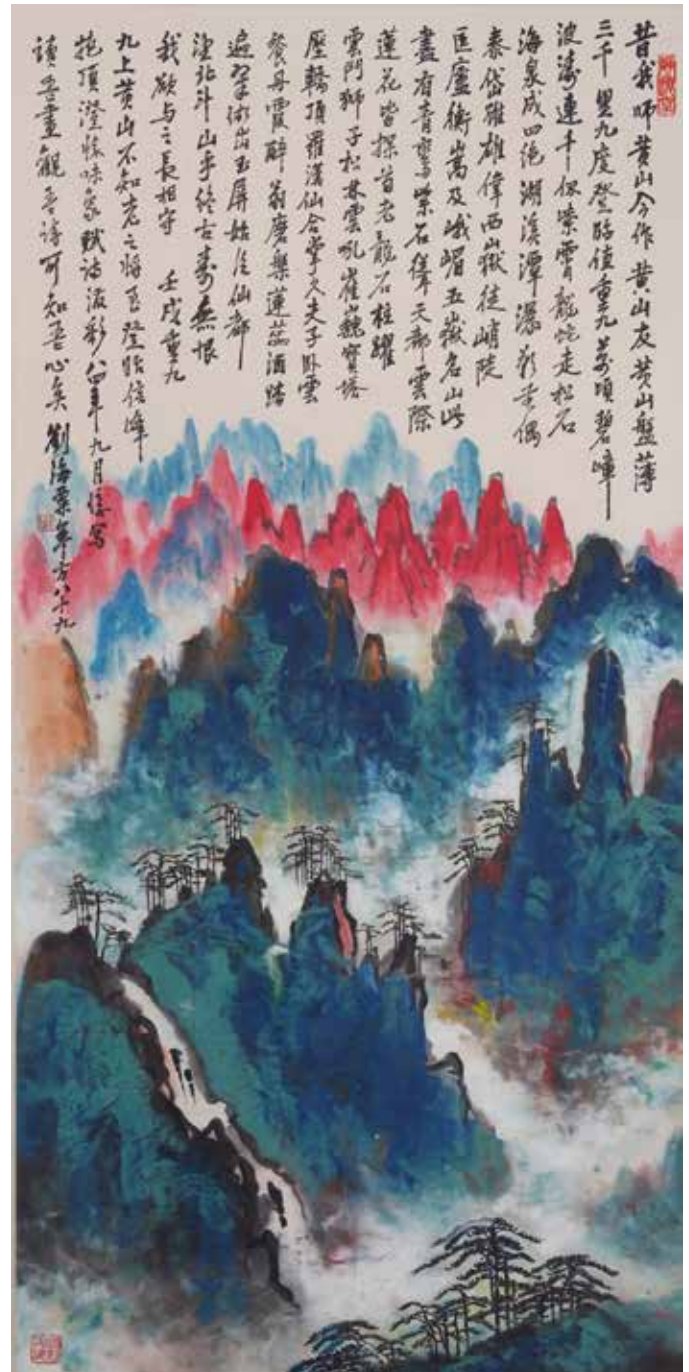 昔我師黄山今作黄山友黄山盤薄
三千里九度登臨值重九萬頃碧嶂
波濤連千仞紫霄龍蛇走松石
海泉成四絕湖溪潭瀑彩奇偶
泰岱雖雄偉西嶽徒峭陡
匡廬衡嵩及峨嵋五嶽名山此
盡有青鸞紫石聳天都雲際
蓮花皆探首老龍石柱躍
雲門獅子松林雲吼崔巍寶塔
壓轎頂羅漢仙合掌久夫子卧雲
餐丹霞醉翁磨槃蓮蕊酒踏
遍翠微尚玉屏始信仙都
望北斗山乎終古壽無恨
我欲与之長相守 壬戌重九
九上黄山不知老之將至登始信峰
絶頂澄懷味象賦詩潑彩八四年九月後寫
讀吾畫觀吾詩可知吾心矣 劉海粟年方八十九